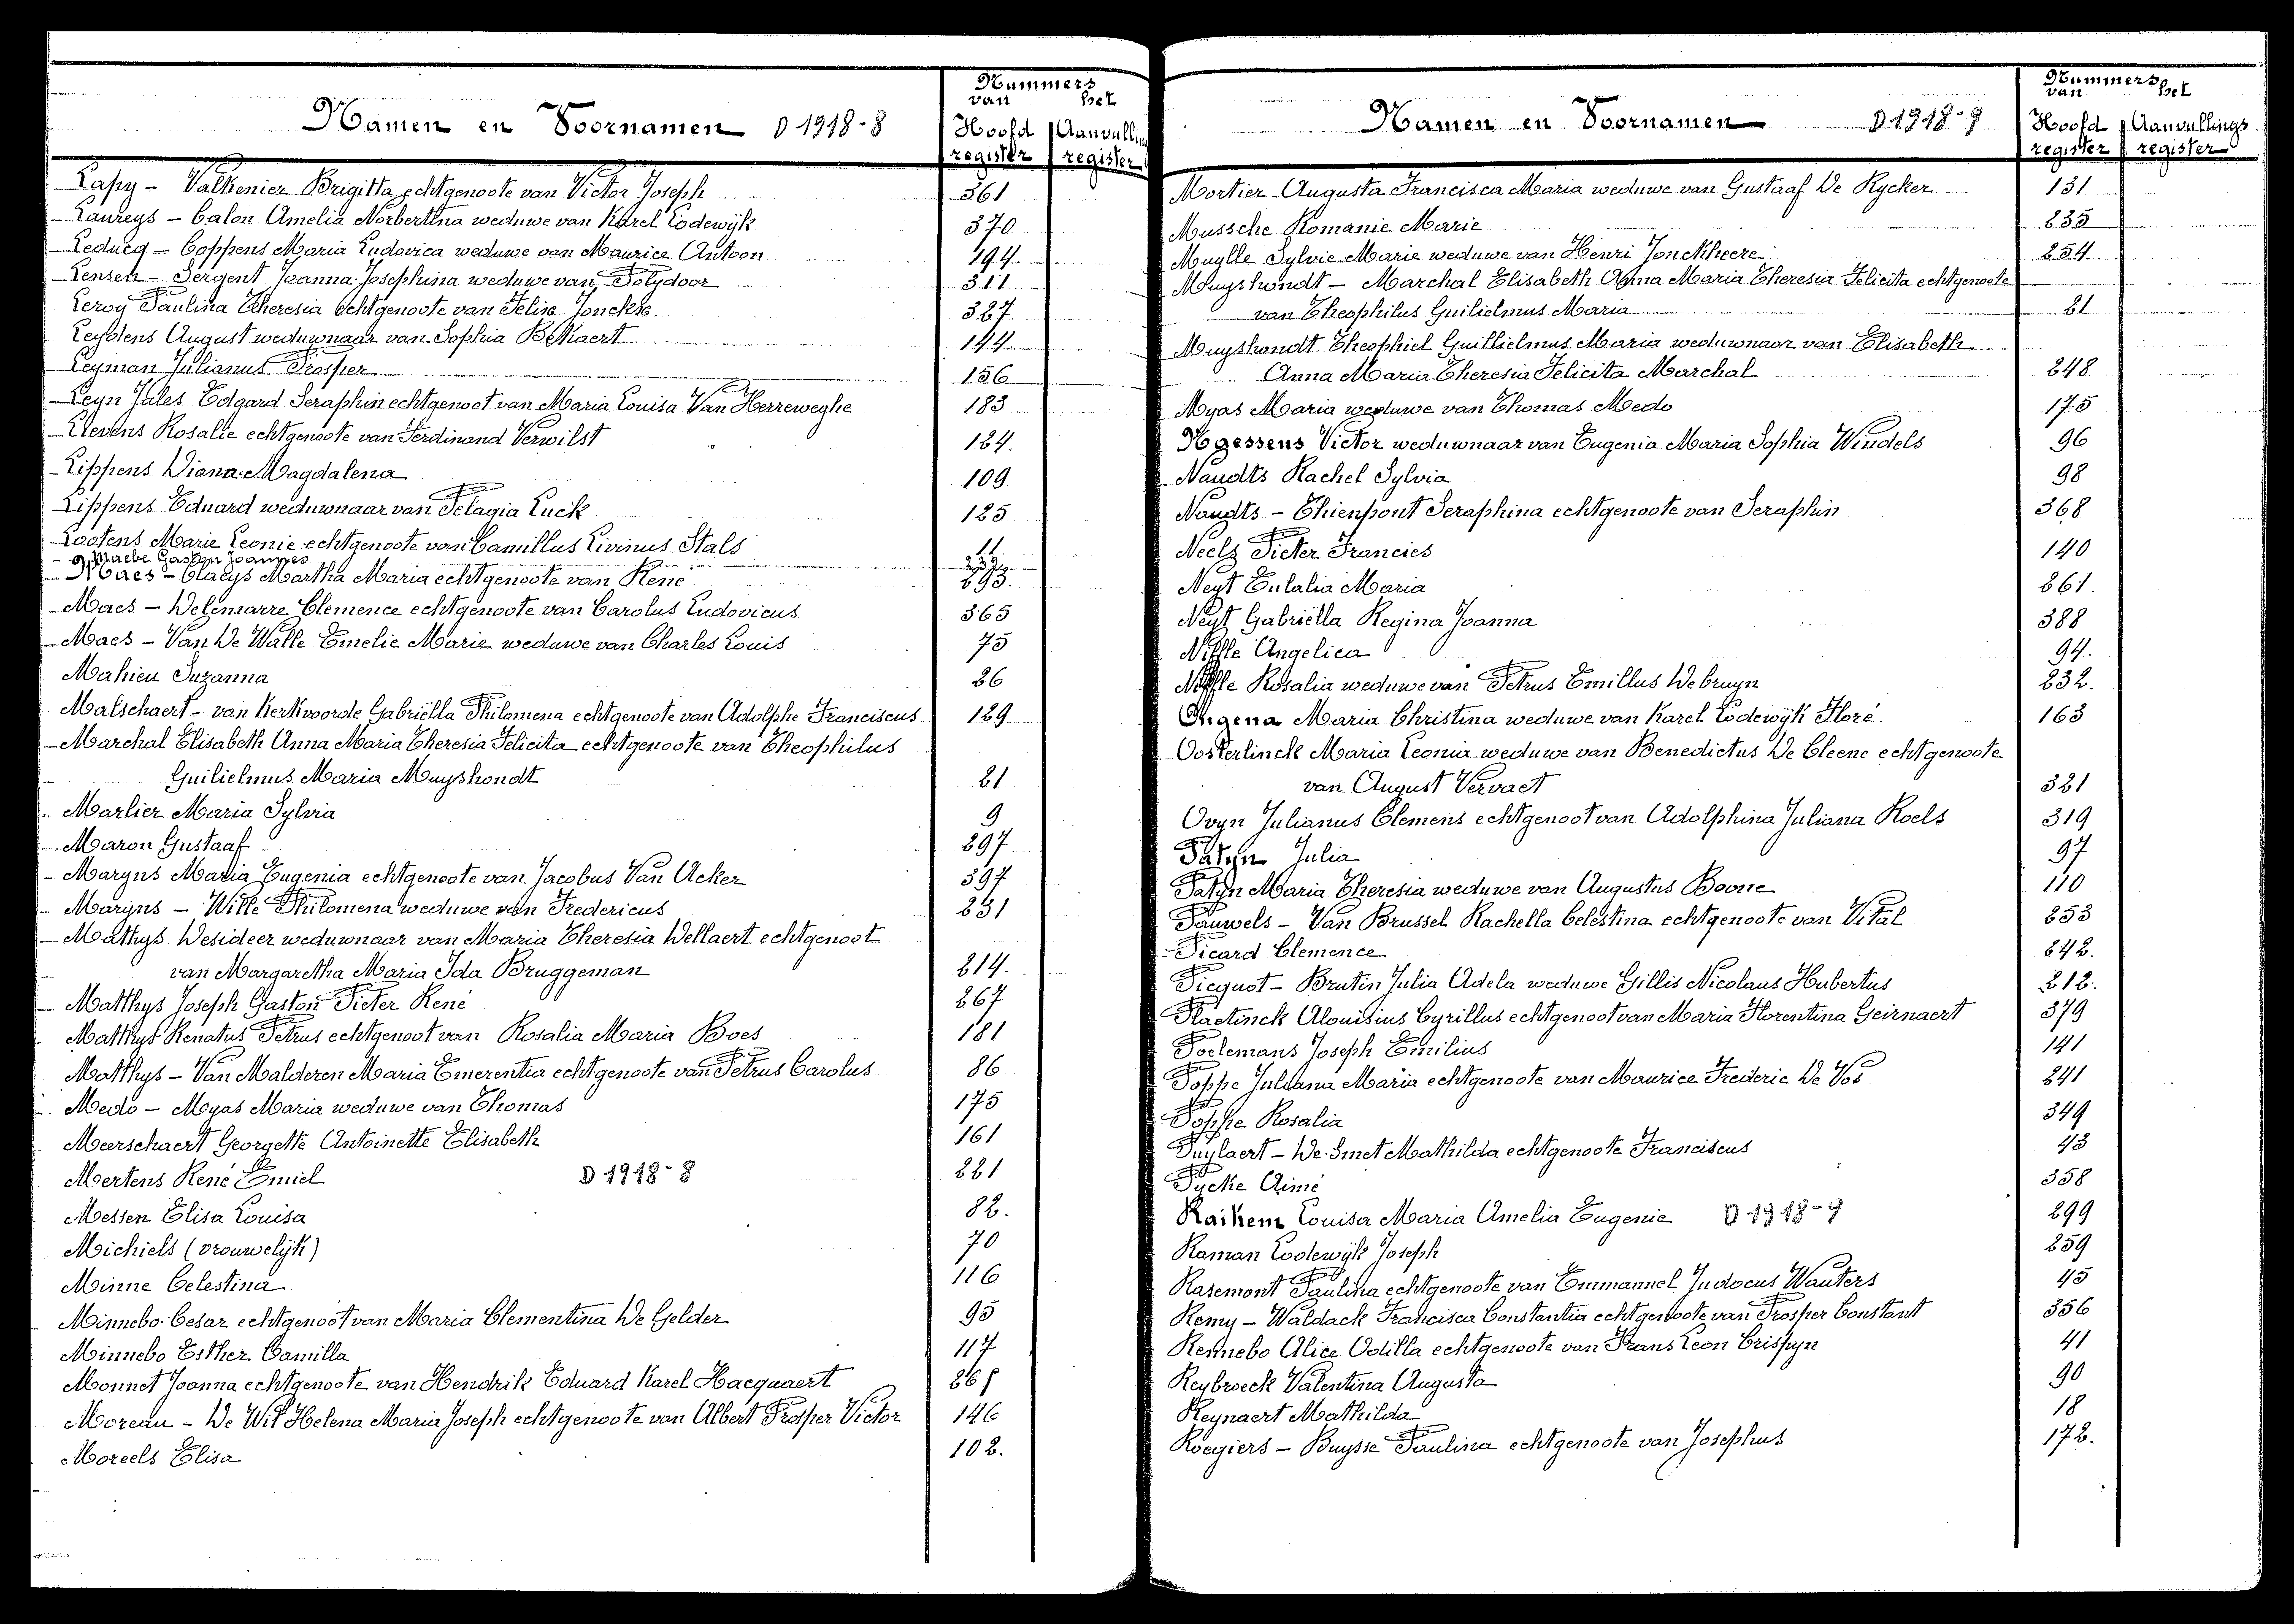 Nummers
van het
Namen en Voornamen D 1918-8
Hoofd register Aanvullin register
Lapy - Valkenier Brigitta echtgenoote van Victor Joseph 361
Laureys - Calon Amelia Norbertina weduwe van Karel Lodewijk 370
Leducq - Coppens Maria Ludovica weduwe van Maurice Antoon 194
Lensen - Sergent Joanna Josephina weduwe van Polydoor 311
Leroy Paulina Theresia echtgenoote van Felix Jonckx 327
Leydens August weduwnaar van Sophia Bekaert 144
Leyman Julianus Prosper 156
Leyn Jules Edgard Seraphin echtgenoot van Maria Louisa Van Herreweghe 183
Lievens Rosalie echtgenoote van Ferdinand Verwilst 124.
Lippens Diana Magdalena 109
Lippens Eduard weduwnaar van Pelagia Luck 125
Lootens Marie Leonie echtgenoote van Camillus Livinus Stals 11
Maebe Gaston Joannes
Maes - Claeys Martha Maria echtgenoote van René 293.
Maes - Delemarre Clemence echtgenoote van Carolus Ludovicus 365
Maes - Van De Walle Emelie Marie weduwe van Charles Louis 75
Mahieu Suzanna 26
Malschaert - van Kerkvoorde Gabriëlla Philomena echtgenoote van Adolphe Franciscus 129
Marchal Elisabeth Anna Maria Theresia Felicita echtgenoote van Theophilus
Guilielmus Maria Muyshondt 21
Marlier Maria Sylvia 9
Maron Gustaaf 297
Maryns Maria Eugenia echtgenoote van Jacobus Van Acker 397
Maryns - Wille Philomena weduwe van Fredericus 231
Mathys Desideer weduwnaar van Maria Theresia Dellaert echtgenoot
van Margaretha Maria Ida Bruggeman 214.
Matthys Joseph Gaston Pieter René 267
Matthys Renatus Petrus echtgenoot van Rosalia Maria Boes 181
Matthys - Van Malderen Maria Emerentia echtgenoote van Petrus Carolus 86
Medo - Myas Maria weduwe van Thomas 175
Meerschaert Georgette Antoinette Elisabeth 161
Mertens René Emiel D 1918-8 221
Messen Elisa Louisa 82.
Michiels (vrouwelijk) 70
Minne Celestina 116
Minnebo Cesar echtgenoot van Maria Clementina De Gelder 95
Minnebo Esther Camilla 117
Monnet Joanna echtgenoote van Hendrik Eduard Karel Hacquaert
Moreau - De Wit Helena Maria Joseph echtgenoote van Albert Prosper Victor 146
Moreels Elisa 102.
Nummers
van het
Namen en Voornamen D 1918-9
Hoofd register Aanvullings register
Mortier Augusta Francisca Maria weduwe van Gustaaf De Rycker 131
Mussche Romanie Marie 235
Muylle Sylvie Marie weduwe van Henri Jonckheere 254
Muyshondt - Marchal Elisabeth Anna Maria Theresia Felicita echtgenoote
van Theophilus Guilielmus Maria 21
Muyshondt Theophiel Guillielmus Maria weduwnaar van Elisabeth
Anna Maria Theresia Felicita Marchal 248
Myas Maria weduwe van Thomas Medo 175
Nagessens Victor weduwnaar van Eugenia Maria Sophia Windels 96
Naudts Rachel Sylvia 98
Naudts - Thienpont Seraphina echtgenoote van Seraphin 368
Neels Pieter Francies 140
Neyt Eulalia Maria 261
Neyt Gabriëlla Regina Joanna 388
Niffle Angelica 94.
Niffle Rosalia weduwe van Petrus Emillus Debruyn 232.
Ongena Maria Christina weduwe van Karel Lodewijk Floré 163
Oosterlinck Maria Leonia weduwe van Benedictus De Cleene echtgenoote
van August Vervaet 321
Ovyn Julianus Clemens echtgenoot van Adolphina Juliana Roels 319
Patyn Julia 97
Patyn Maria Theresia weduwe van Augustus Boone 110
Pauwels - Van Brussel Rachella Celestina echtgenoote van Vital 253
Picard Clemence 242.
Picquot - Brutin Julia Adela weduwe Gillis Nicolaus Hubertus 212.
Plaetinck Alouisius Cyrillus echtgenoot van Maria Florentina Geirnaert 379
Poelemans Joseph Emilius 141
Poppe Juliana Maria echtgenoote van Maurice Frederic De Vos 241
Poppe Rosalia 349
Puylaert - De Smet Mathilda echtgenoote Franciscus 43
Pycke Aimé 358
Raikem Louisa Maria Amelia Eugenie D 1918-9 299
Raman Lodewijk Joseph 259
Rasemont Paulina echtgenoote van Emmanuel Judocus Wauters 45
Remy - Waldack Francisca Constantia echtgenoote van Prosper Constant 356
Rennebo Alice Odilla echtgenoote van Frans Leon Crispyn 41
Reybroeck Valentina Augusta 90
Reynaert Mathilda 18
Roegiers - Buysse Paulina echtgenoote van Josephus 172.